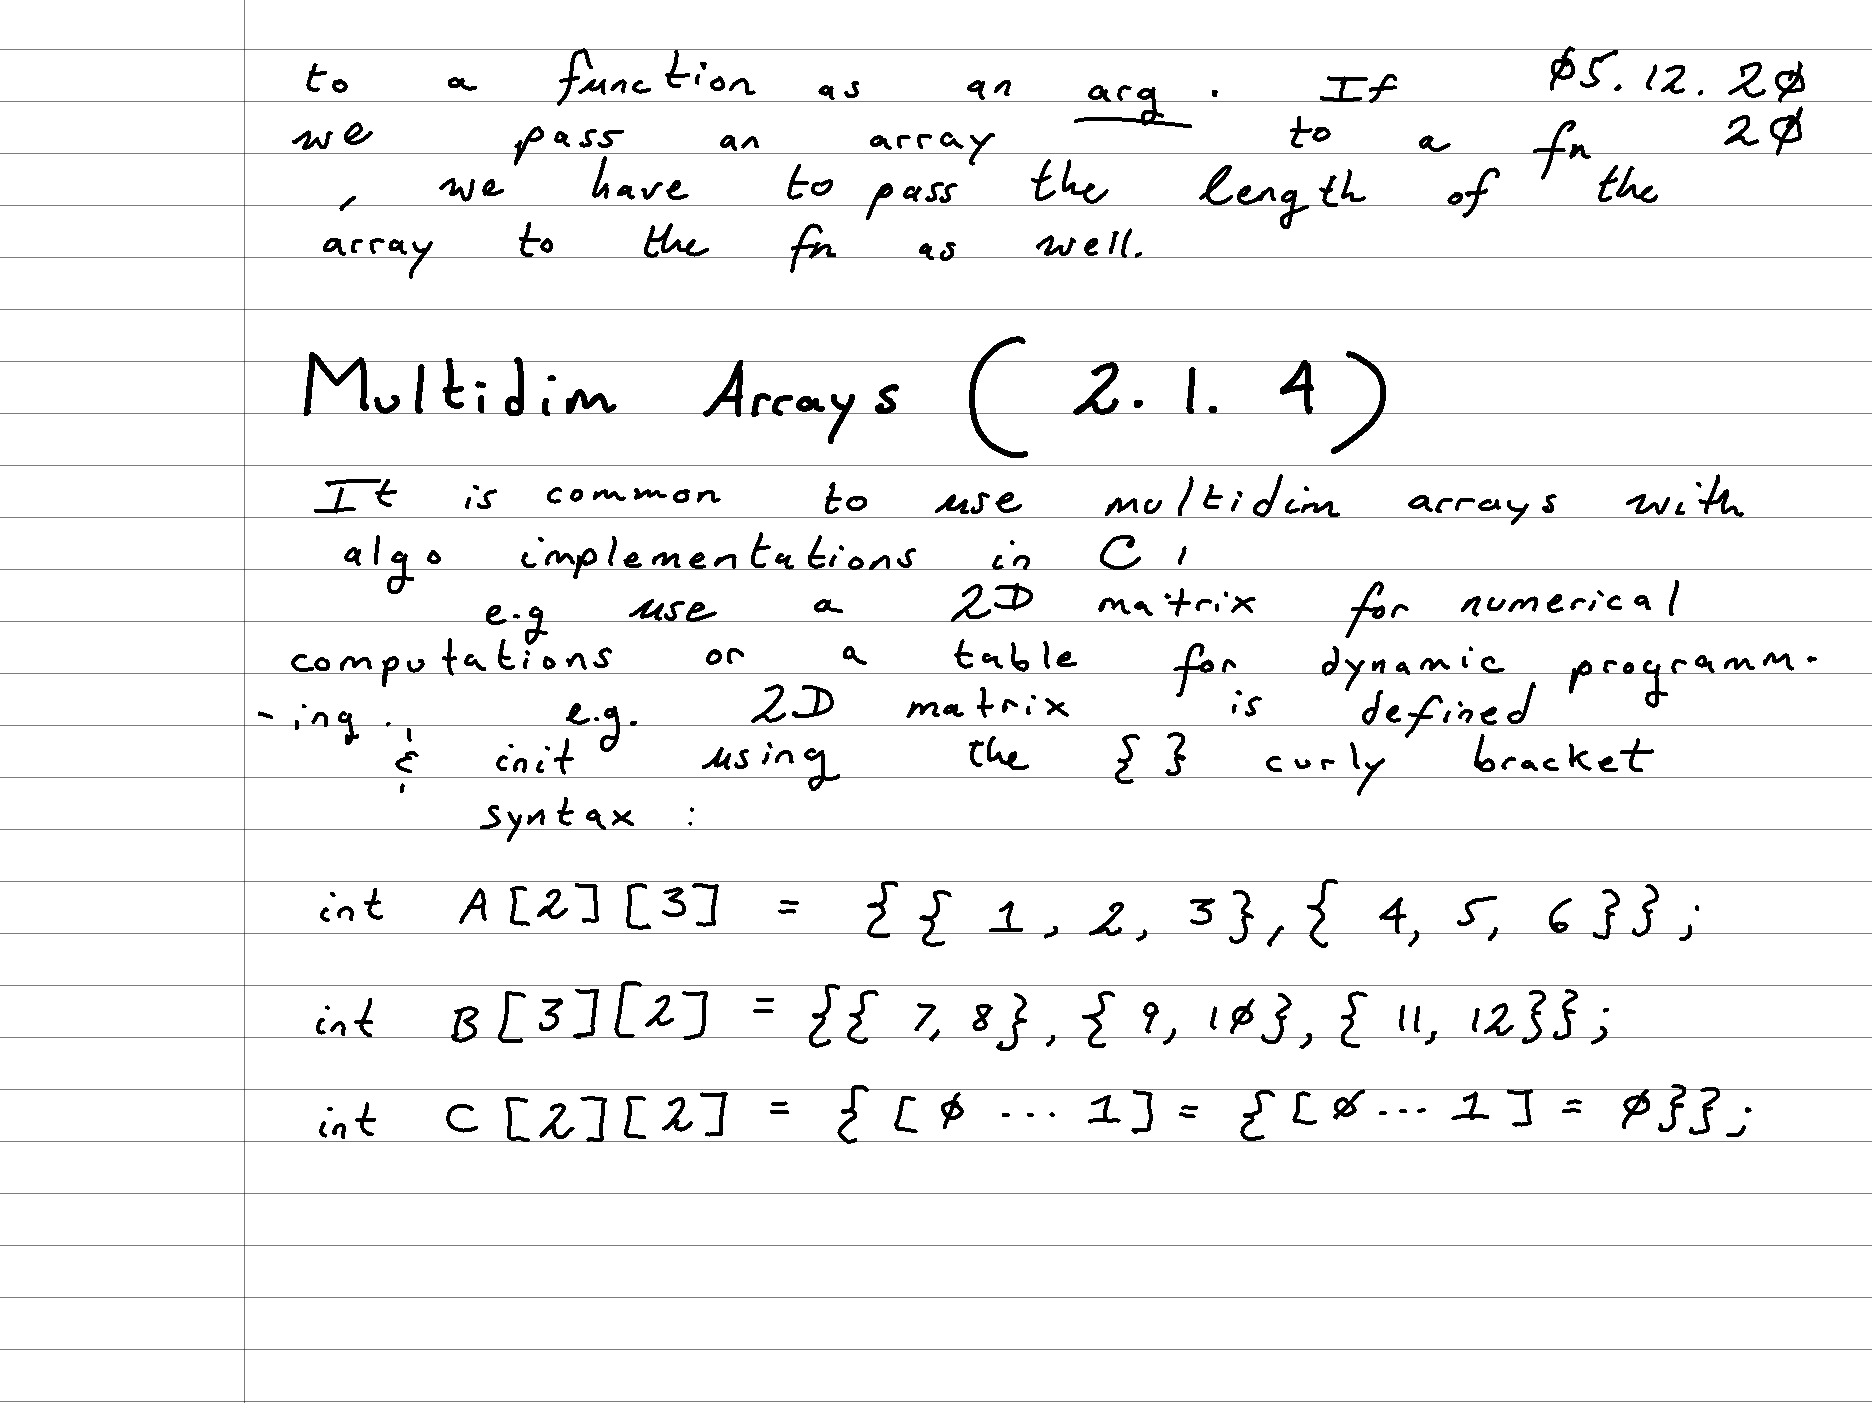 to a function as an arg. If 05.12.20
we pass an array to a fn 20
, we have to pass the length of the
array to the fn as well.
Multidim Arrays (2.1.4)
It is common to use multidim arrays with
algo implementations in C,
e.g use a 2D matrix for numerical
computations or a table for dynamic programm-
-ing. e.g. 2D matrix is defined
& init using the { } curly bracket
syntax :
int A[2][3] = {{ 1, 2, 3},{ 4, 5, 6 }};
int B[3][2] = {{ 7, 8}, { 9, 10}, { 11, 12}};
int C[2][2] = { [ 0 ... 1] = { [0 ... 1 ] = 0}};